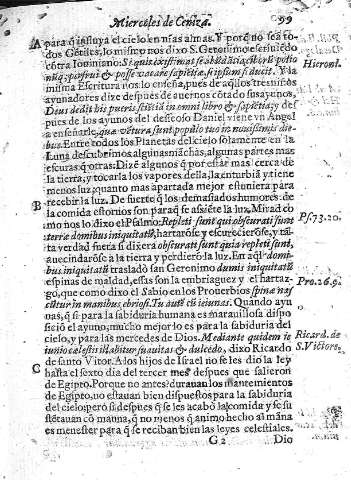 Miercoles de Ceniza. 99
A para q̃ influya el cielo en ñras almas. Y porq̃ no sea to
dos Gẽtiles, lo mismo nos dixo S. Geronimo escriuiẽdo
cõtra Iouiniano:
misma Escritura nos lo enseña, pues de aq̃llos tres niños
ayunadores dize despues de auernos cõtado sus ayunos,
Deus dedit his pueris sciẽtiã in omni libro & sapiẽtia; y des
pues de los ayunos del desseoso Daniel viene vn Angel
a enseñarle, quæ vẽtura sunt populo tuo in nouissimis die-
bus. Entre todos los Planetas del cielo solamente en la
Luna descubrimos algunas mãchas, algunas partes mas
escuras q̃ otras. Dizẽ algunos q̃ por estar mas cerca de
la tierra, y tocarla los vapores della, la enturbiã y tiene
menos luz, quanto mas apartada mejor estuniera para
B recebir la luz. De suerte q̃ los demasiados humores de
la comida estoruos son para q̃ se assiẽte la luz. Mirad co
mo nos lo dixo el Psalmo. Repleti sunt qui obscurati sunt
terræ domibus iniquitatũ, hartarõse y escurecierõse, y tã-
ta verdad fuera si dixera obscurati sunt quia repleti sunt,
auecindarõse a la tierra y perdierõ la luz. En aq̃l domi-
bus iniquitatũ trasladò san Geronimo dumis iniquitatũ
espinas de maldad, essas son la embriaguez y el hartaz-
go, que como dixo el Sabio en los Prouerbios spinæ nas
cũtur in manibus ebriosi. Tu autẽ cũ ieiunas. Quãndo ayu
nas, q̃ si para la sabiduria humana es marauillosa dispo
sició el ayuno, mucho mejor lo es para la sabiduria del
cielo, y para las mercedes de Dios. Mediante quidem ie
iunio cælestis illabitur suauitas & dulcedo, dixo Ricardo
de santo Vitor. A los hijos de Israel no se les diò la ley
C hasta el sexto dia del tercer mes despues que salieron
de Egipto. Porque no antes? durauan los mantenimientos
de Egipto, no estauan bien dispuestos para la sabiduria
del cielo, pero si despues q̃ se les acabò la comida y se su
stẽtauan cõ manna, q̃ no menos q̃ animo hecho al mãna
es menester para q̃ se reciban bien las leyes celestiales.
G 2 Dio
Hieronī.
Ps. 73. 20.
Pro. 26. 9.
Ricard. de
S. Victore.